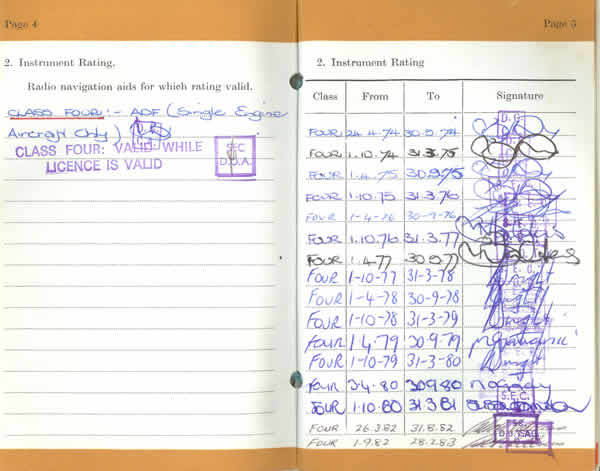 Page 4
2. Instrument Rating.
Radio navigation aids for which rating valid.
CLASS FOUR :- ADF (Single Engine
Aircraft Only)
CLASS FOUR: VALID WHILE
LICENCE IS VALID
SEC
D.C.A.
Page 5
2. Instrument Rating
Class From To Signature
FOUR 24.4.74 30.9.74
FOUR 1.10.74 31.3.75
FOUR 1.4.75 30.9.75
FOUR 1.10.75 31.3.76
FOUR 1-4-76 30-9-76
FOUR 1.10.76 31.3.77
FOUR 1.4.77 30.9.77
FOUR 1-10-77 31-3-78
FOUR 1-4-78 30-9-78
FOUR 1-10-78 31-3-79
FOUR 1.4.79 30.9.79
FOUR 1-10-79 31-3-80
FOUR 3.4.80 30.9.80
S.E.C.
FOUR 1.10.80 31.3.81
FOUR 26.3.82 31.8.82
FOUR 1.9.82 28.2.83